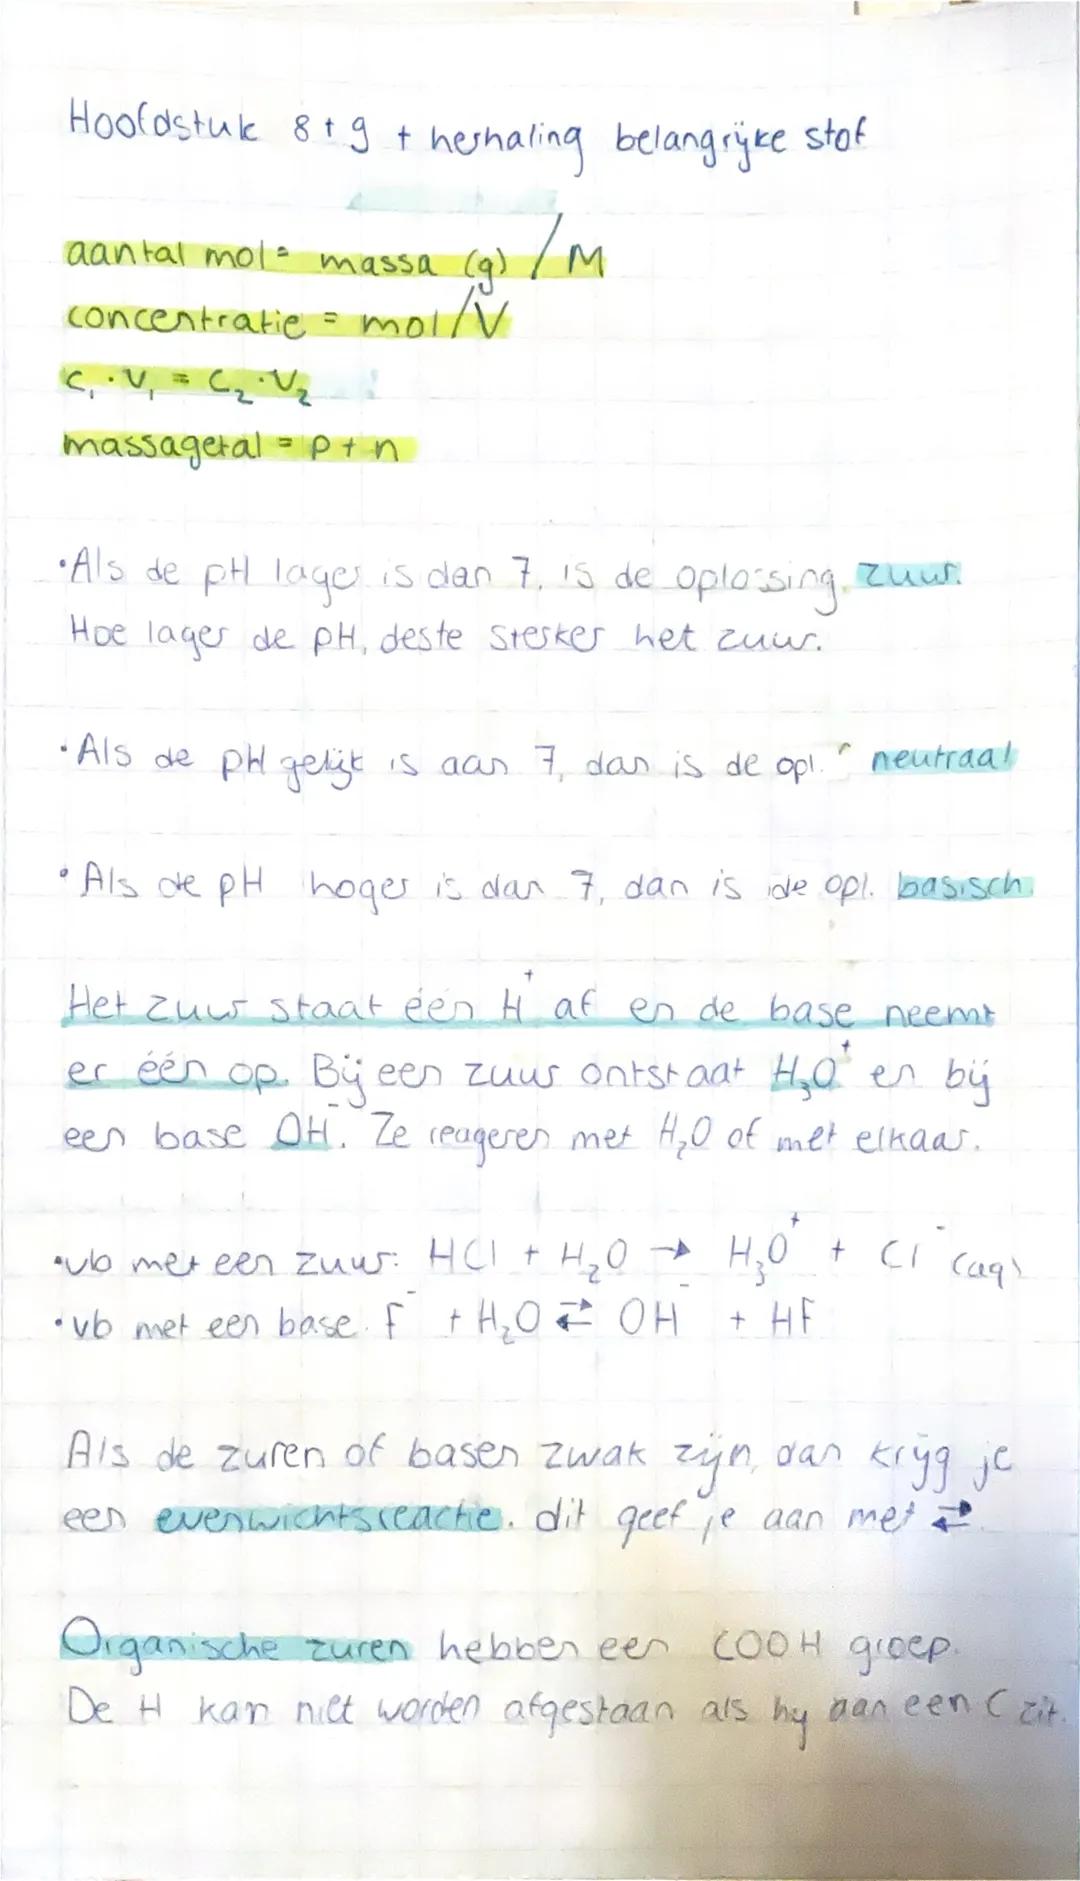 Hoofdstuk 8 + 9 + herhaling belangrijke stof
aantal mol = massa (g) / M
concentratie = mol/V
C₁ · V₁ = C₂ · V₂
massagetal = p + n
• Als de pH lager is dan 7, is de oplossing zuur.
Hoe lager de pH, deste sterker het zuur.
• Als de pH gelijk is aan 7, dan is de opl. neutraal
• Als de pH hoger is dan 7, dan is de opl. basisch
Het zuur staat één H⁺ af en de base neemt
er één op. Bij een zuur ontstaat H₃O⁺ en bij
een base OH⁻. Ze reageren met H₂O of met elkaar.
• vb met een zuur: HCl + H₂O → H₃O⁺ + Cl⁻ (aq)
• vb met een base. F⁻ + H₂O ⇄ OH⁻ + HF
Als de zuren of basen zwak zijn, dan krijg je
een evenwichtsreactie. dit geef je aan met ⇄.
Organische zuren hebben een COOH groep.
De H kan niet worden afgestaan als hij aan een C zit.